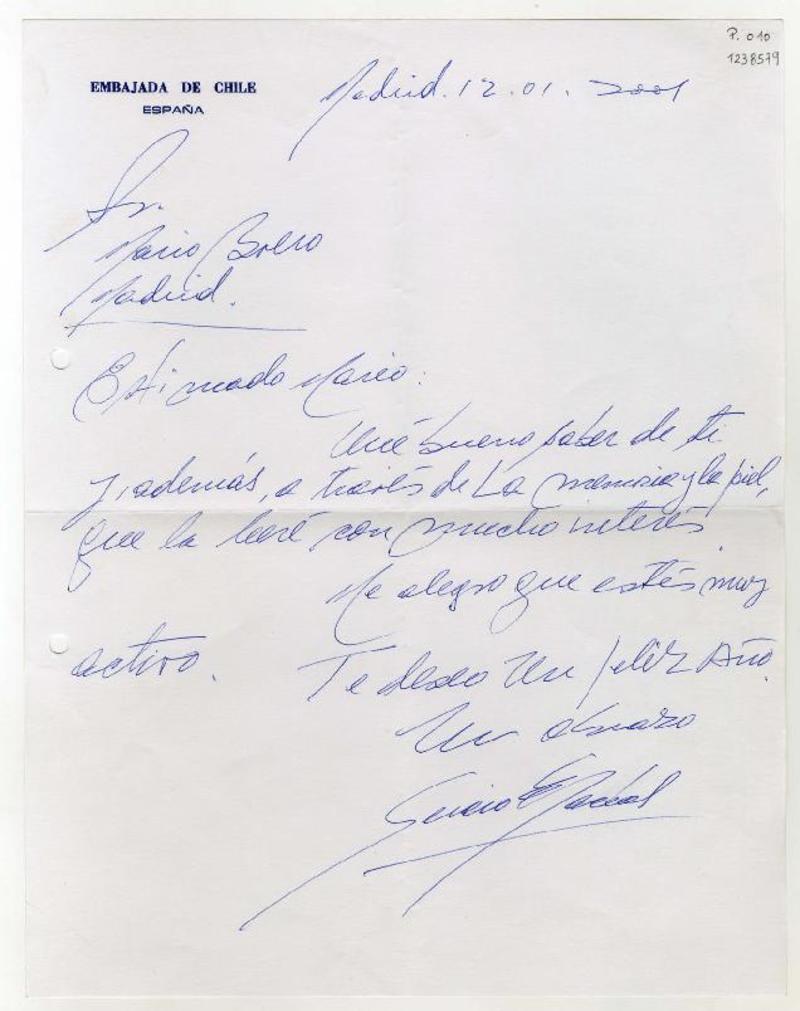 P. 010
1238579
EMBAJADA DE CHILE
ESPAÑA
Madrid. 12.01. 2001
Sr.
Mario Boero
Madrid.
Estimado Mario:
Qué bueno saber de ti
y, además, a través de La memoria y la piel,
que la leeré con mucho interés.
Me alegro que estés muy
activo. Te deseo Un feliz Año.
Un abrazo
Sergio